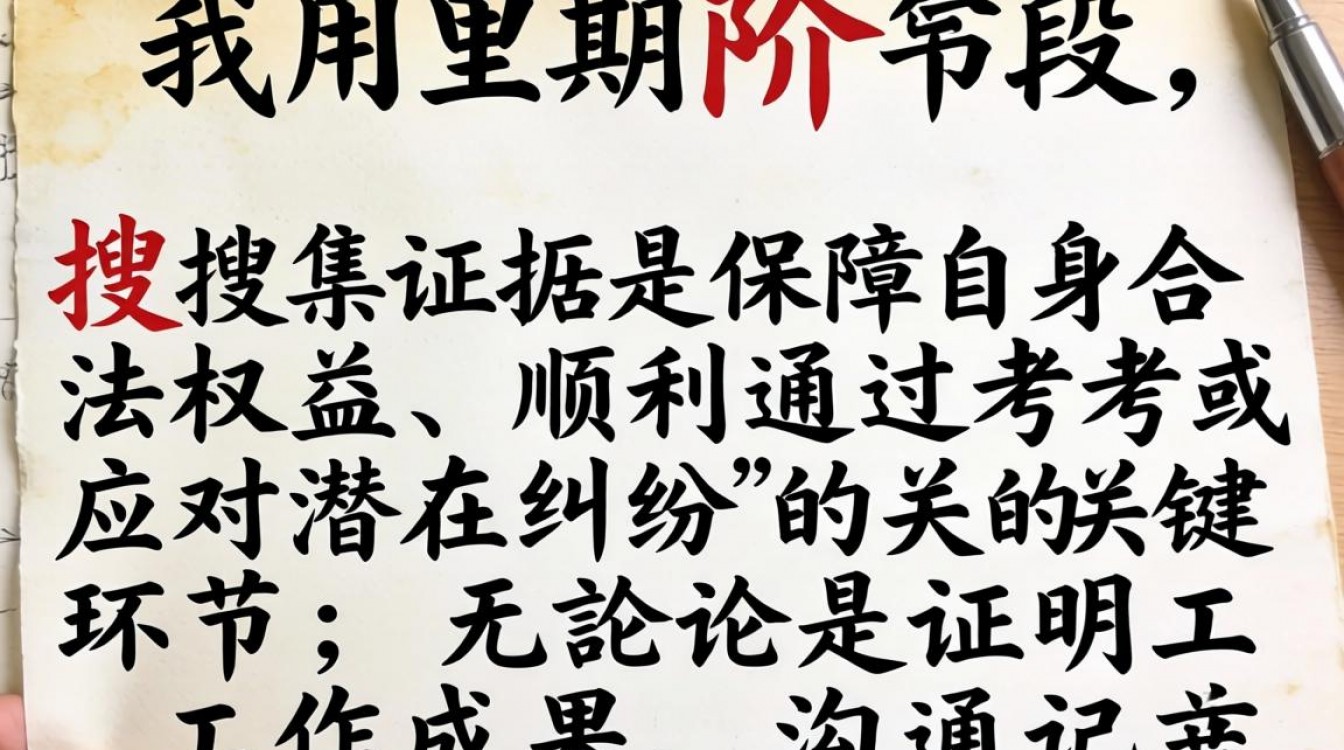 我用里期阶常段，
搜搜集证据是保障自身合
法权益、顺利通过考考或
应对潜在纠纷”的关的关键
环节；无論论是证明工
工作成果、沟通记